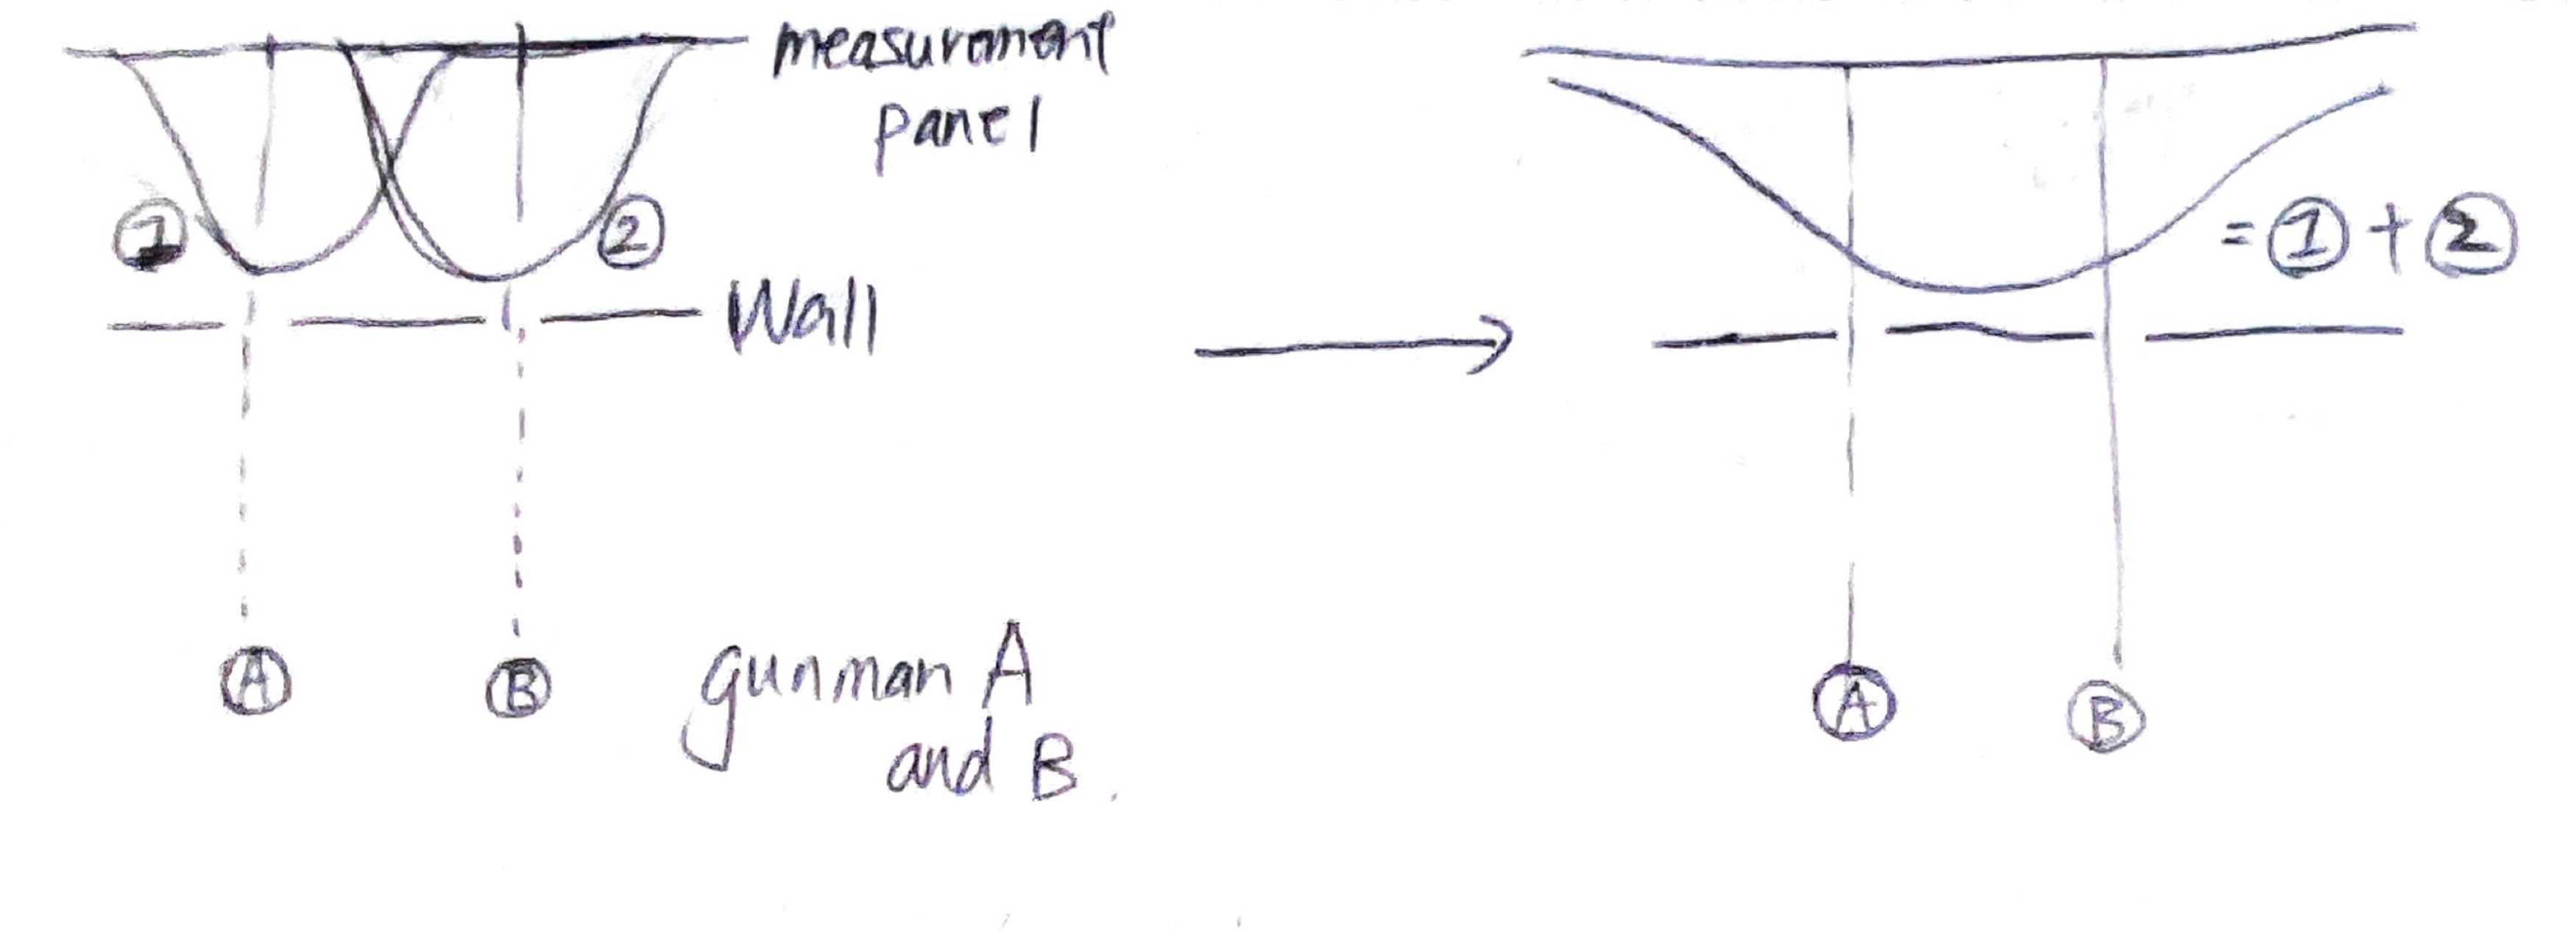 measurement
panel
① ②
Wall
Ⓐ Ⓑ
gunman A
and B.
= ① + ②
Ⓐ Ⓑ